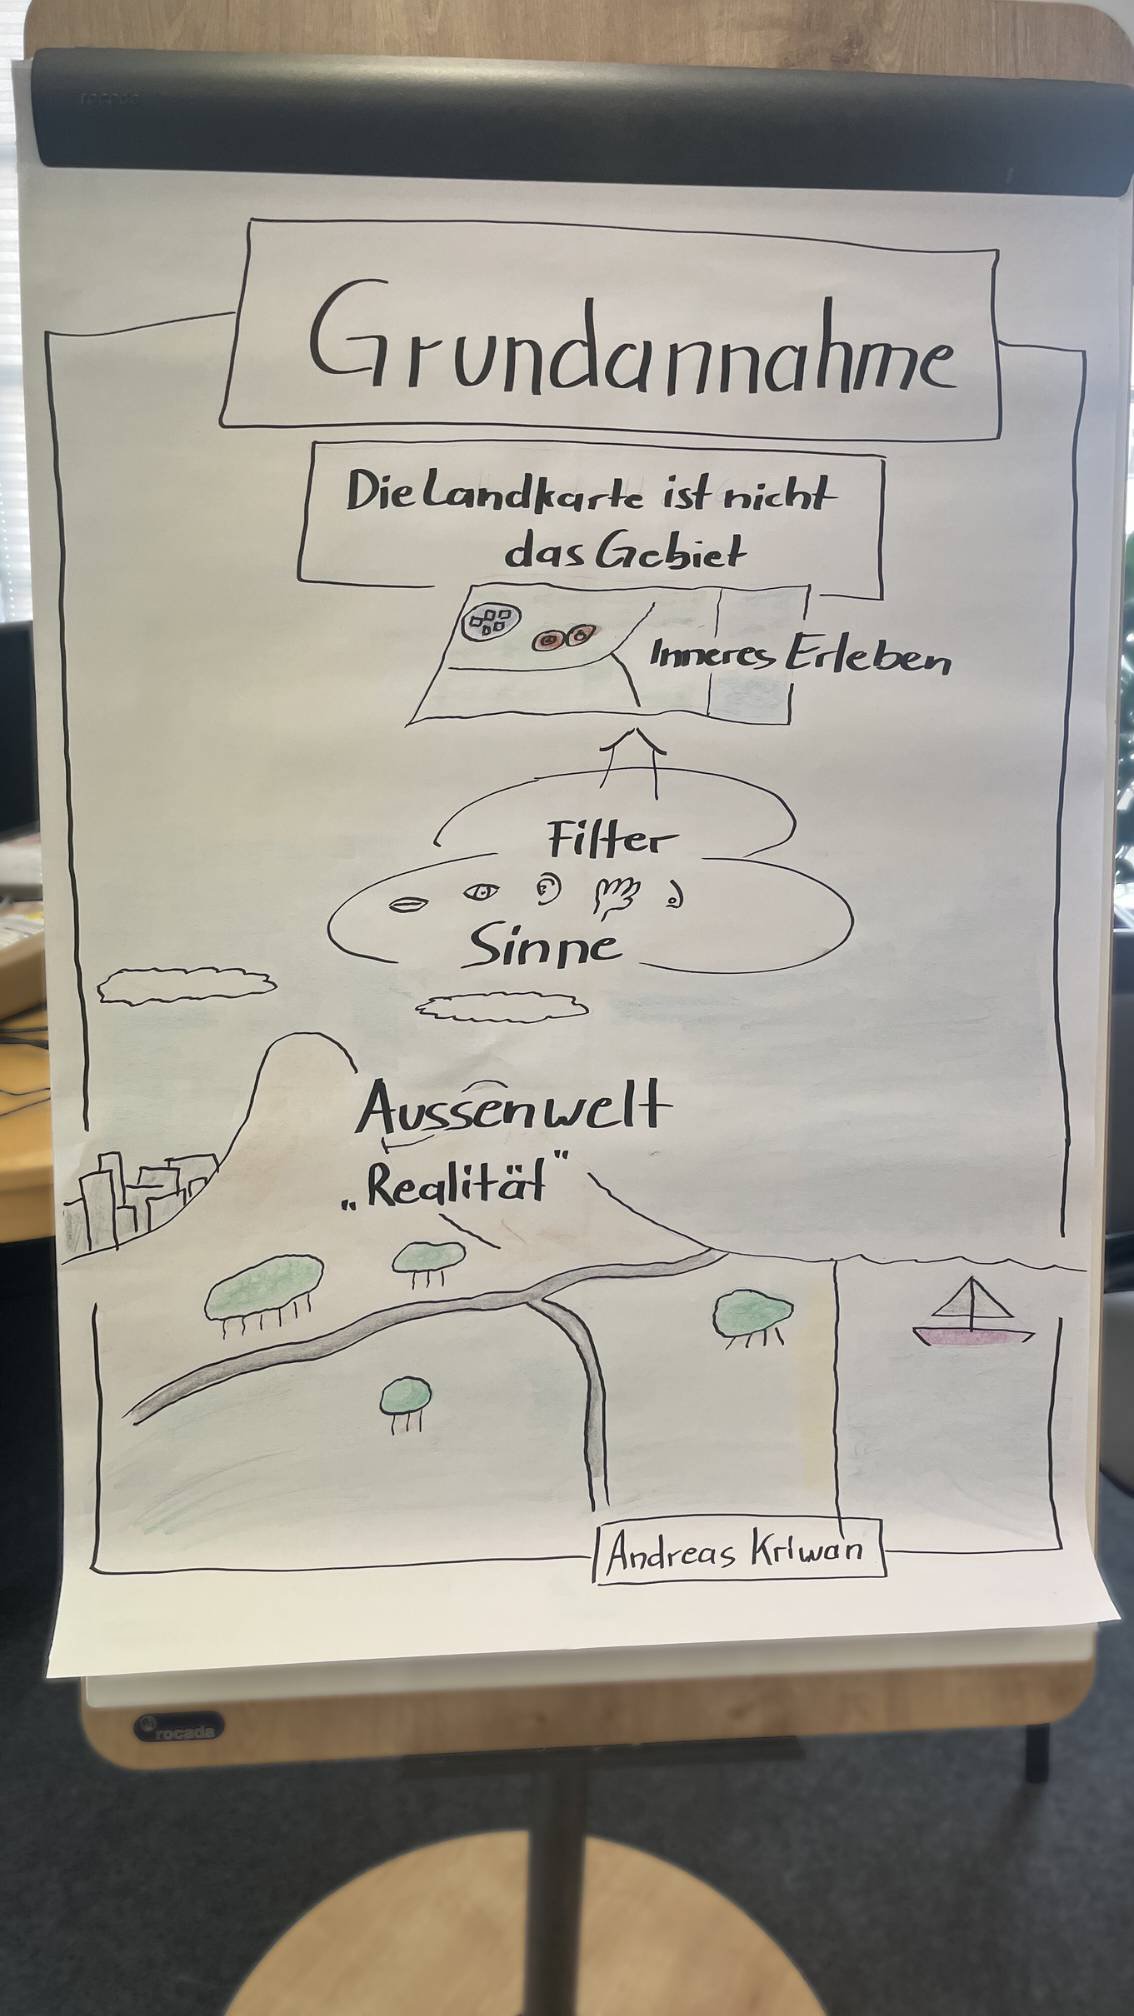 Grundannahme
Die Landkarte ist nicht
das Gebiet
Inneres Erleben
Filter
Sinne
Aussenwelt
„Realität"
Andreas Kriwan
rocada